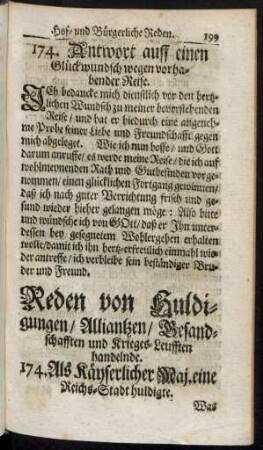 Hof- und Bürgerliche Reden. 199
174. Antwort auff einen
Glückwundsch wegen vorha-
bender Reise.
ICh bedancke mich dienstlich vor den hertz-
lichen Wundsch zu meiner bevorstehenden
Reise / und hat er hiedurch eine angeneh-
me Probe seiner Liebe und Freundschafft gegen
mich abgeleget. Wie ich nun hoffe / und Gott
darum anruffe / es werde meine Reise / die ich auf
wohlmeynenden Rath und Gutbefinden vorge-
nommen / einen glücklichen Fortgang gewinnen /
daß ich nach guter Verrichtung frisch und ge-
sund wieder hieher gelangen möge: Also bitte
und wündsche ich von GOtt / daß er Ihn unter-
dessen bey gesegnetem Wohlergehen erhalten
wolle / damit ich ihn hertz-erfreulich einmahl wie-
der antreffe / ich verbleibe sein beständiger Bru-
der und Freund.
Reden von Huldi-
gungen / Alliantzen / Gesand-
schafften und Krieges-Leufften
handelnde.
174. Als Käyserlicher Maj. eine
Reichs-Stadt huldigte.
Was